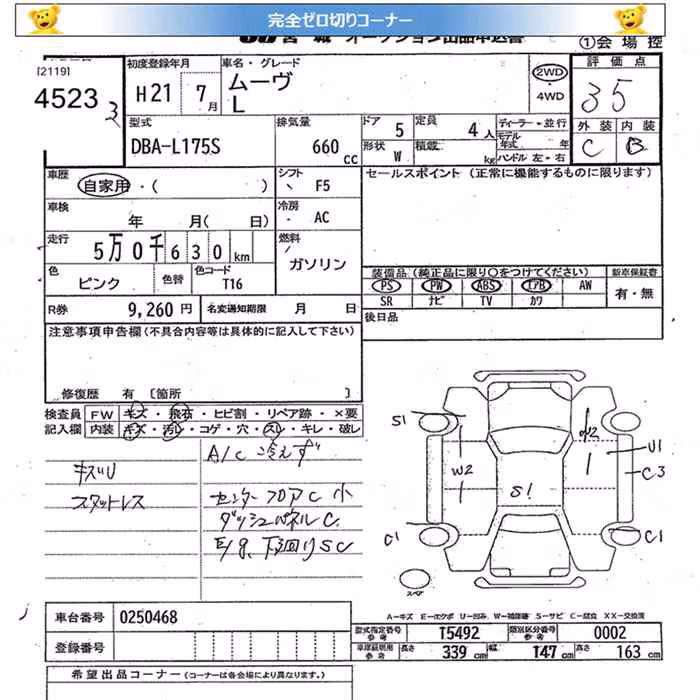 完全ゼロ切りコーナー
宮城 オークション出品申込書
①会場控
[2119]
4523
3
初度登録年月
H21 7月
車名・グレード
ムーヴ
L
2WD
・4WD
評価点
35
外装 内装
C B
型式
DBA-L175S
排気量
660 cc
ドア 5
定員 4人
形状 W
積載 kg
ディーラー・並行
モデル年式 年
ハンドル 左・右
車歴
自家用・( )
シフト
F5
セールスポイント (正常に機能するものに限ります)
車検
年 月( 日)
冷房
AC
走行
5万0千630km
燃料
ガソリン
色
ピンク
色替
色コード
T16
装備品(純正品に限り○をつけてください)
新車保証書
PS PW ABS エアB AW
有・無
SR ナビ TV カワ
R券 9,260円
名変通知期限 月 日
後日品
注意事項申告欄(不具合内容等は具体的に記入して下さい)
修復歴 有 [箇所 ]
検査員 FW キズ・飛石・ヒビ割・リペア跡・×要
記入欄 内装 キズ・汚レ・コゲ・穴・スレ・キレ・破レ
A/C 冷えず
キズU
スタットレス
センターフロアC 小
ダッシュパネルC.
E/g. 下回りSC
S1
W2
U1
C3
S1
C1
C1
スペア
A-キズ E-エクボ U-凹み W-補修跡 S-サビ C-腐食 XX-交換済
車台番号 0250468
登録番号
型式指定番号 参考 15492
類別区分番号 参考 0002
車庫証明用 参考 長さ 339cm 幅 147cm 高さ 163cm
希望出品コーナー (コーナーは各会場により異なります。)